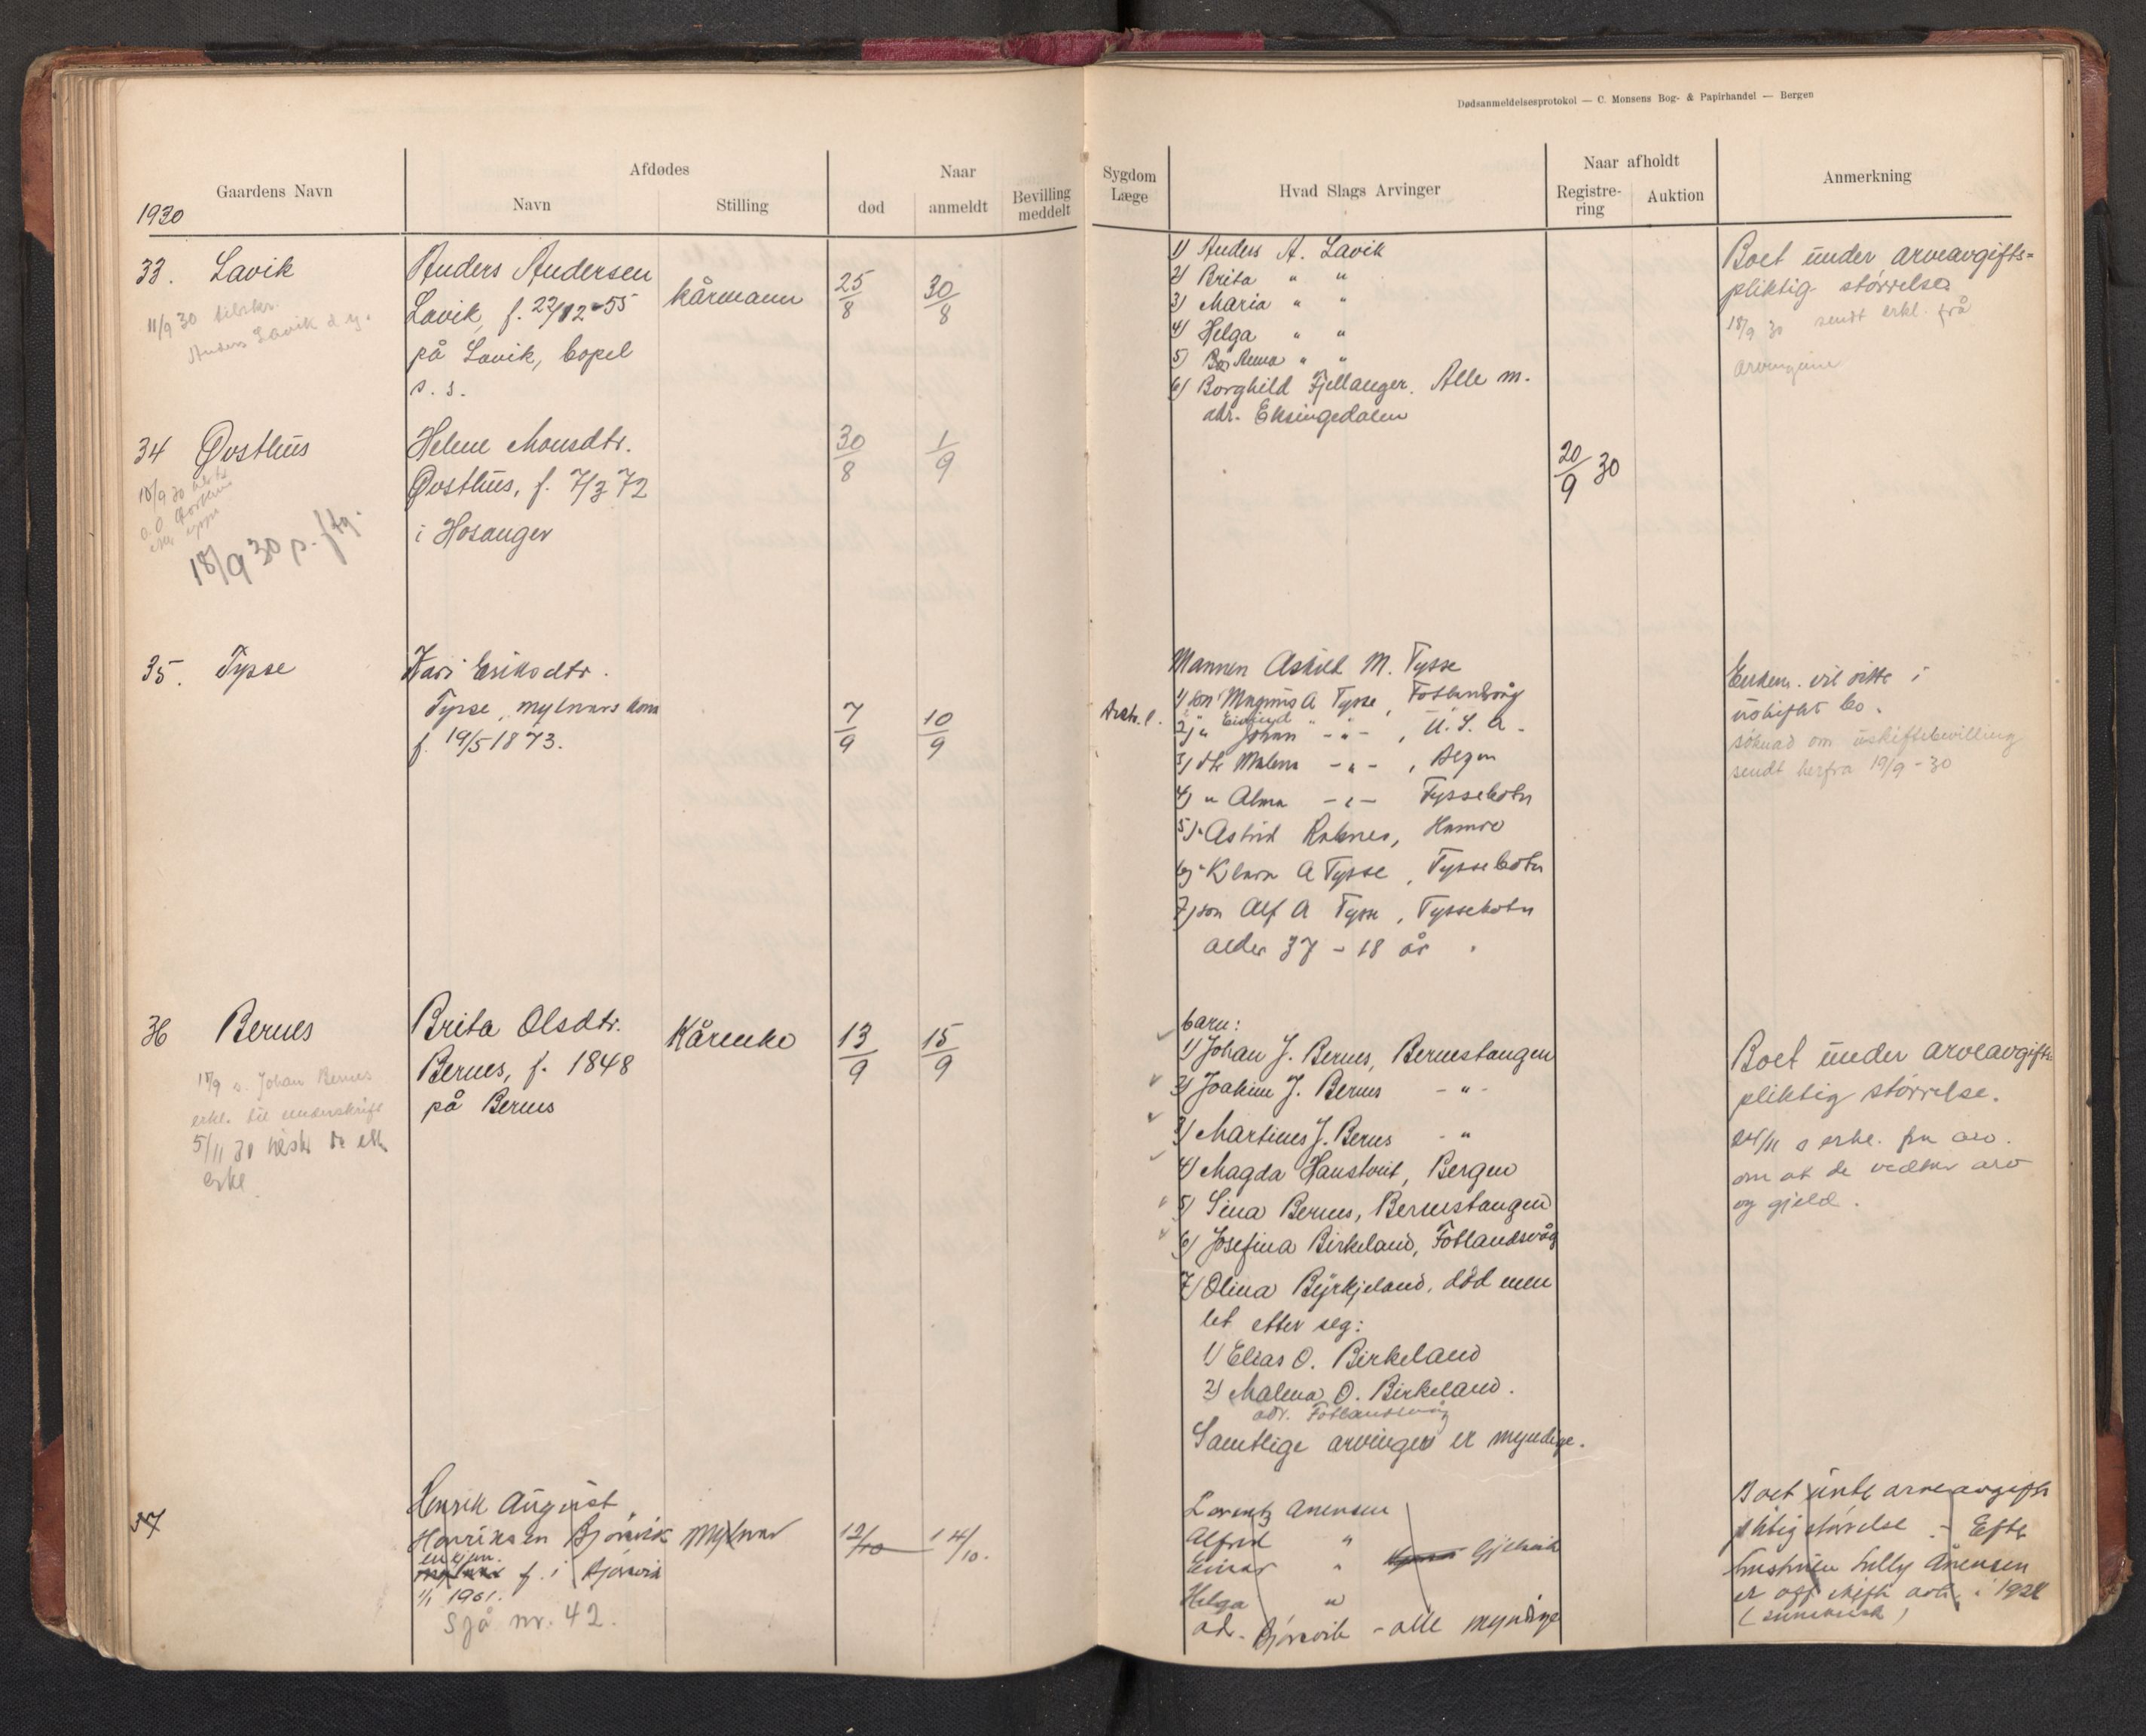 Dødsanmeldelsesprotokol — C. Monsens Bog- & Papirhandel — Bergen
1930
Gaardens Navn
Afdødes
Navn
Stilling
Naar
død
anmeldt
Bevilling meddelt
Sygdom
Læge
Hvad Slags Arvinger
Naar afholdt
Registre-
ring
Auktion
Anmerkning
33. Lavik
11/9 30 tilskr.
Anders Lavik d.y.
Anders Andersen
Lavik, f. 22/12-55
på Lavik, bopel
s. s.
kårmann
25/8
30/8
1) Anders A. Lavik
2) Brita " "
3) Maria " "
4) Helga " "
5) Anna " "
6) Borghild Fjellanger. Alle m.
adr. Eksingedalen
Boet under arveavgifts-
pliktig størrelse
18/9 30 sendt erkl. frå
arvingene
34 Øvsthus
18/9 30
18/9 30 p.
Helene Monsdtr.
Øvsthus, f. 7/3 72
i Hosanger
30/8
1/9
20/9 30
35. Tysse
Kari Eriksdtr.
Tysse, mylnars kona
f. 19/5 1873.
7/9
10/9
Distr. l.
Mannen Askild M. Tysse
1) son Magnus A Tysse, Fotlandsvåg
2) " Johan - " - , U. S. A.
3) dtr Malena - " - , Bergen
4) " Alma - " - Tyssebotn
5) " Astrid Raknes, Hamre
6) " Klara A Tysse, Tyssebotn
7) son Alf A Tysse, Tyssebotn
alder 37 - 18 år
Enkem. vil sitte i
uskiftet bo.
søknad om uskiftebevilling
sendt herfra 19/9 - 30
36 Bernes
s. Johan Bernes
erkl. til underskrift
5/11 30
erkl
Brita Olsdtr.
Bernes, f. 1848
på Bernes
Kårenke
13/9
15/9
barn:
1) Johan J. Bernes, Bernestangen
2) Joakim J. Bernes - " -
3) Martines J. Bernes - "
4) Magda Haustveit, Bergen
5) Sina Bernes, Bernestangen
6) Josefina Birkeland, Fotlandsvåg
7) Olina Byrkjeland, död men
let etter seg:
1) Elias O. Birkeland
2) Malena O. Birkeland.
adr. Fotlandsvåg
Samtlige arvinger er myndige.
Boet under arveavgifts-
pliktig størrelse.
24/11 s erkl. fra arv.
om at de vedtar arv
og gjeld.
37
Henrik August
Henriksen Bjørsvik
enkjem.
f. i Bjørsvik
1/1 1901.
Sjå nr. 42.
Mylnar
12/10
14/10.
Lorentz Anensen
Alfred "
Einar " Gjelsvik
Helga "
adr. Bjørsvik - alle myndige
Boet unte arveavgifts
pliktig størrelse - Efter
hustruen Lilly Ånensen
er off skifte avh. i 1928